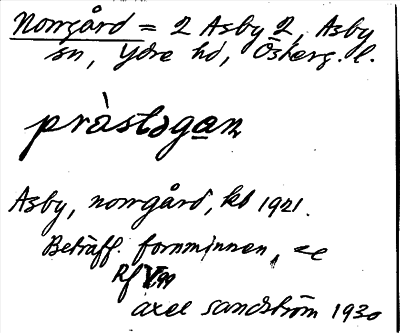 Norrgård = 2 Asby 2, Asby
sn, Ydre hd, Österg. l.
pràstəgan
Asby, norrgård, kb 1921.
Beträff. fornminnen, se
Rf
axel sandström 1930